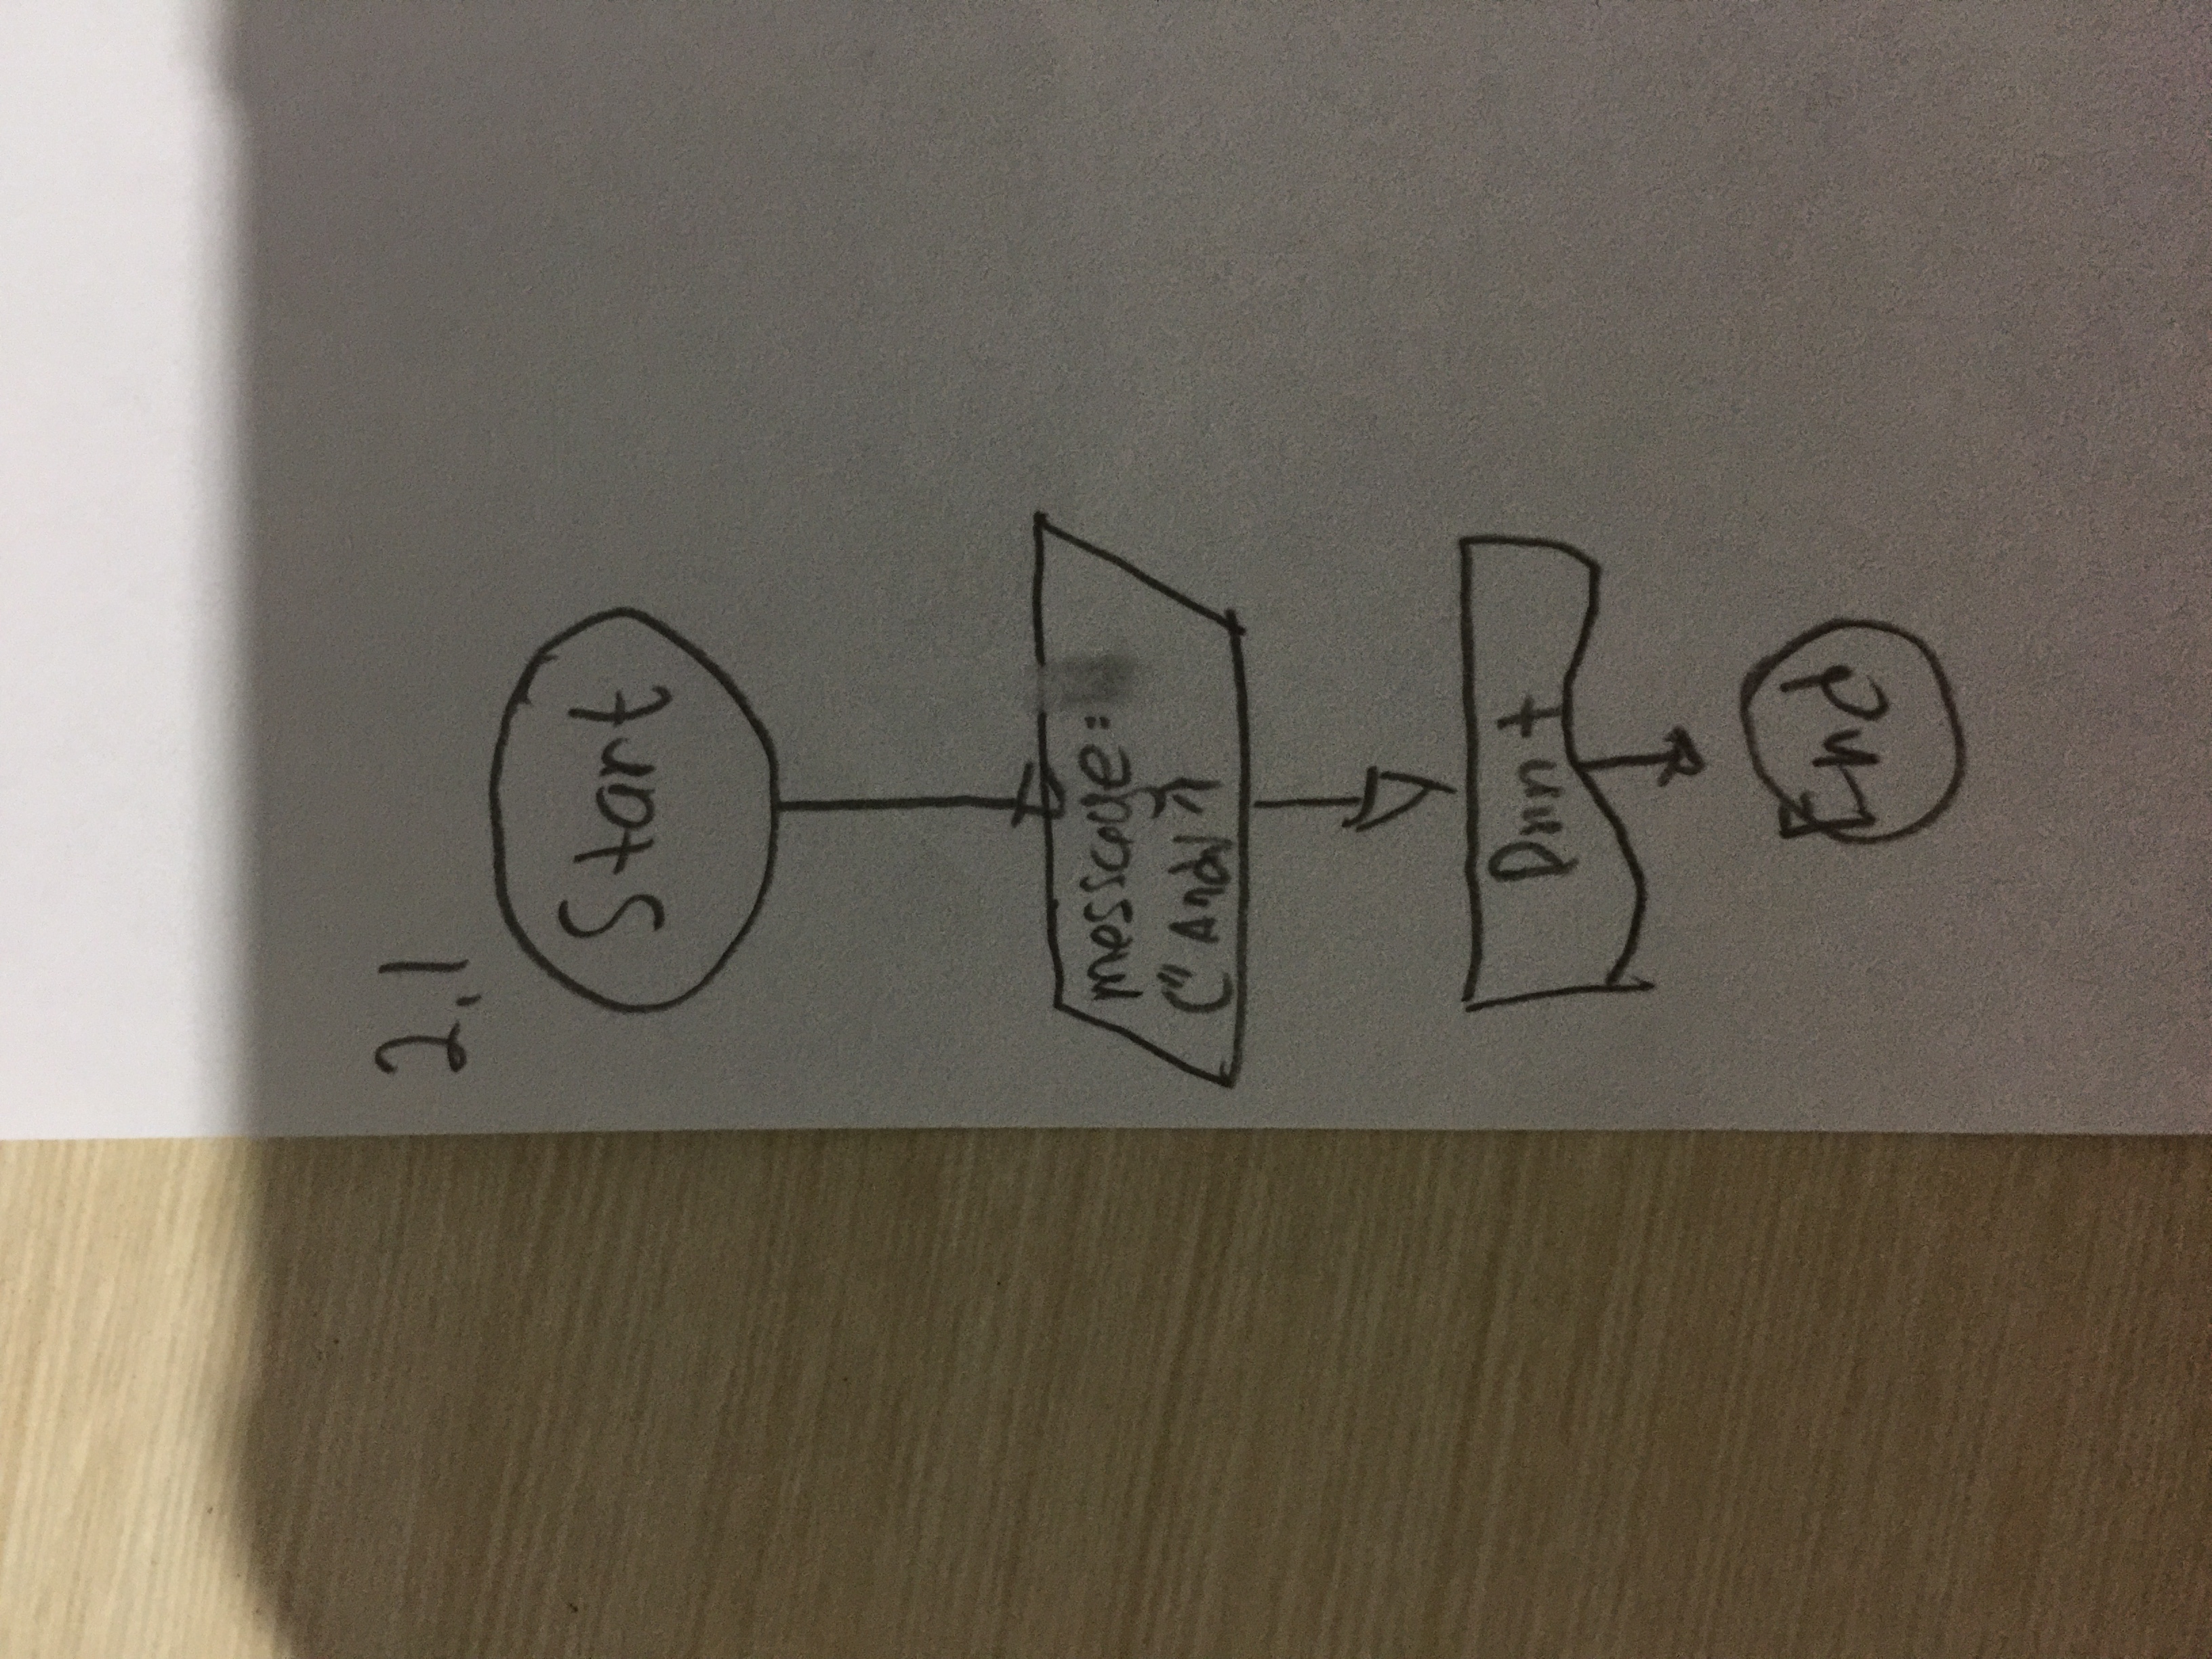 2.1
Start
message =
("Andy")
Print
End